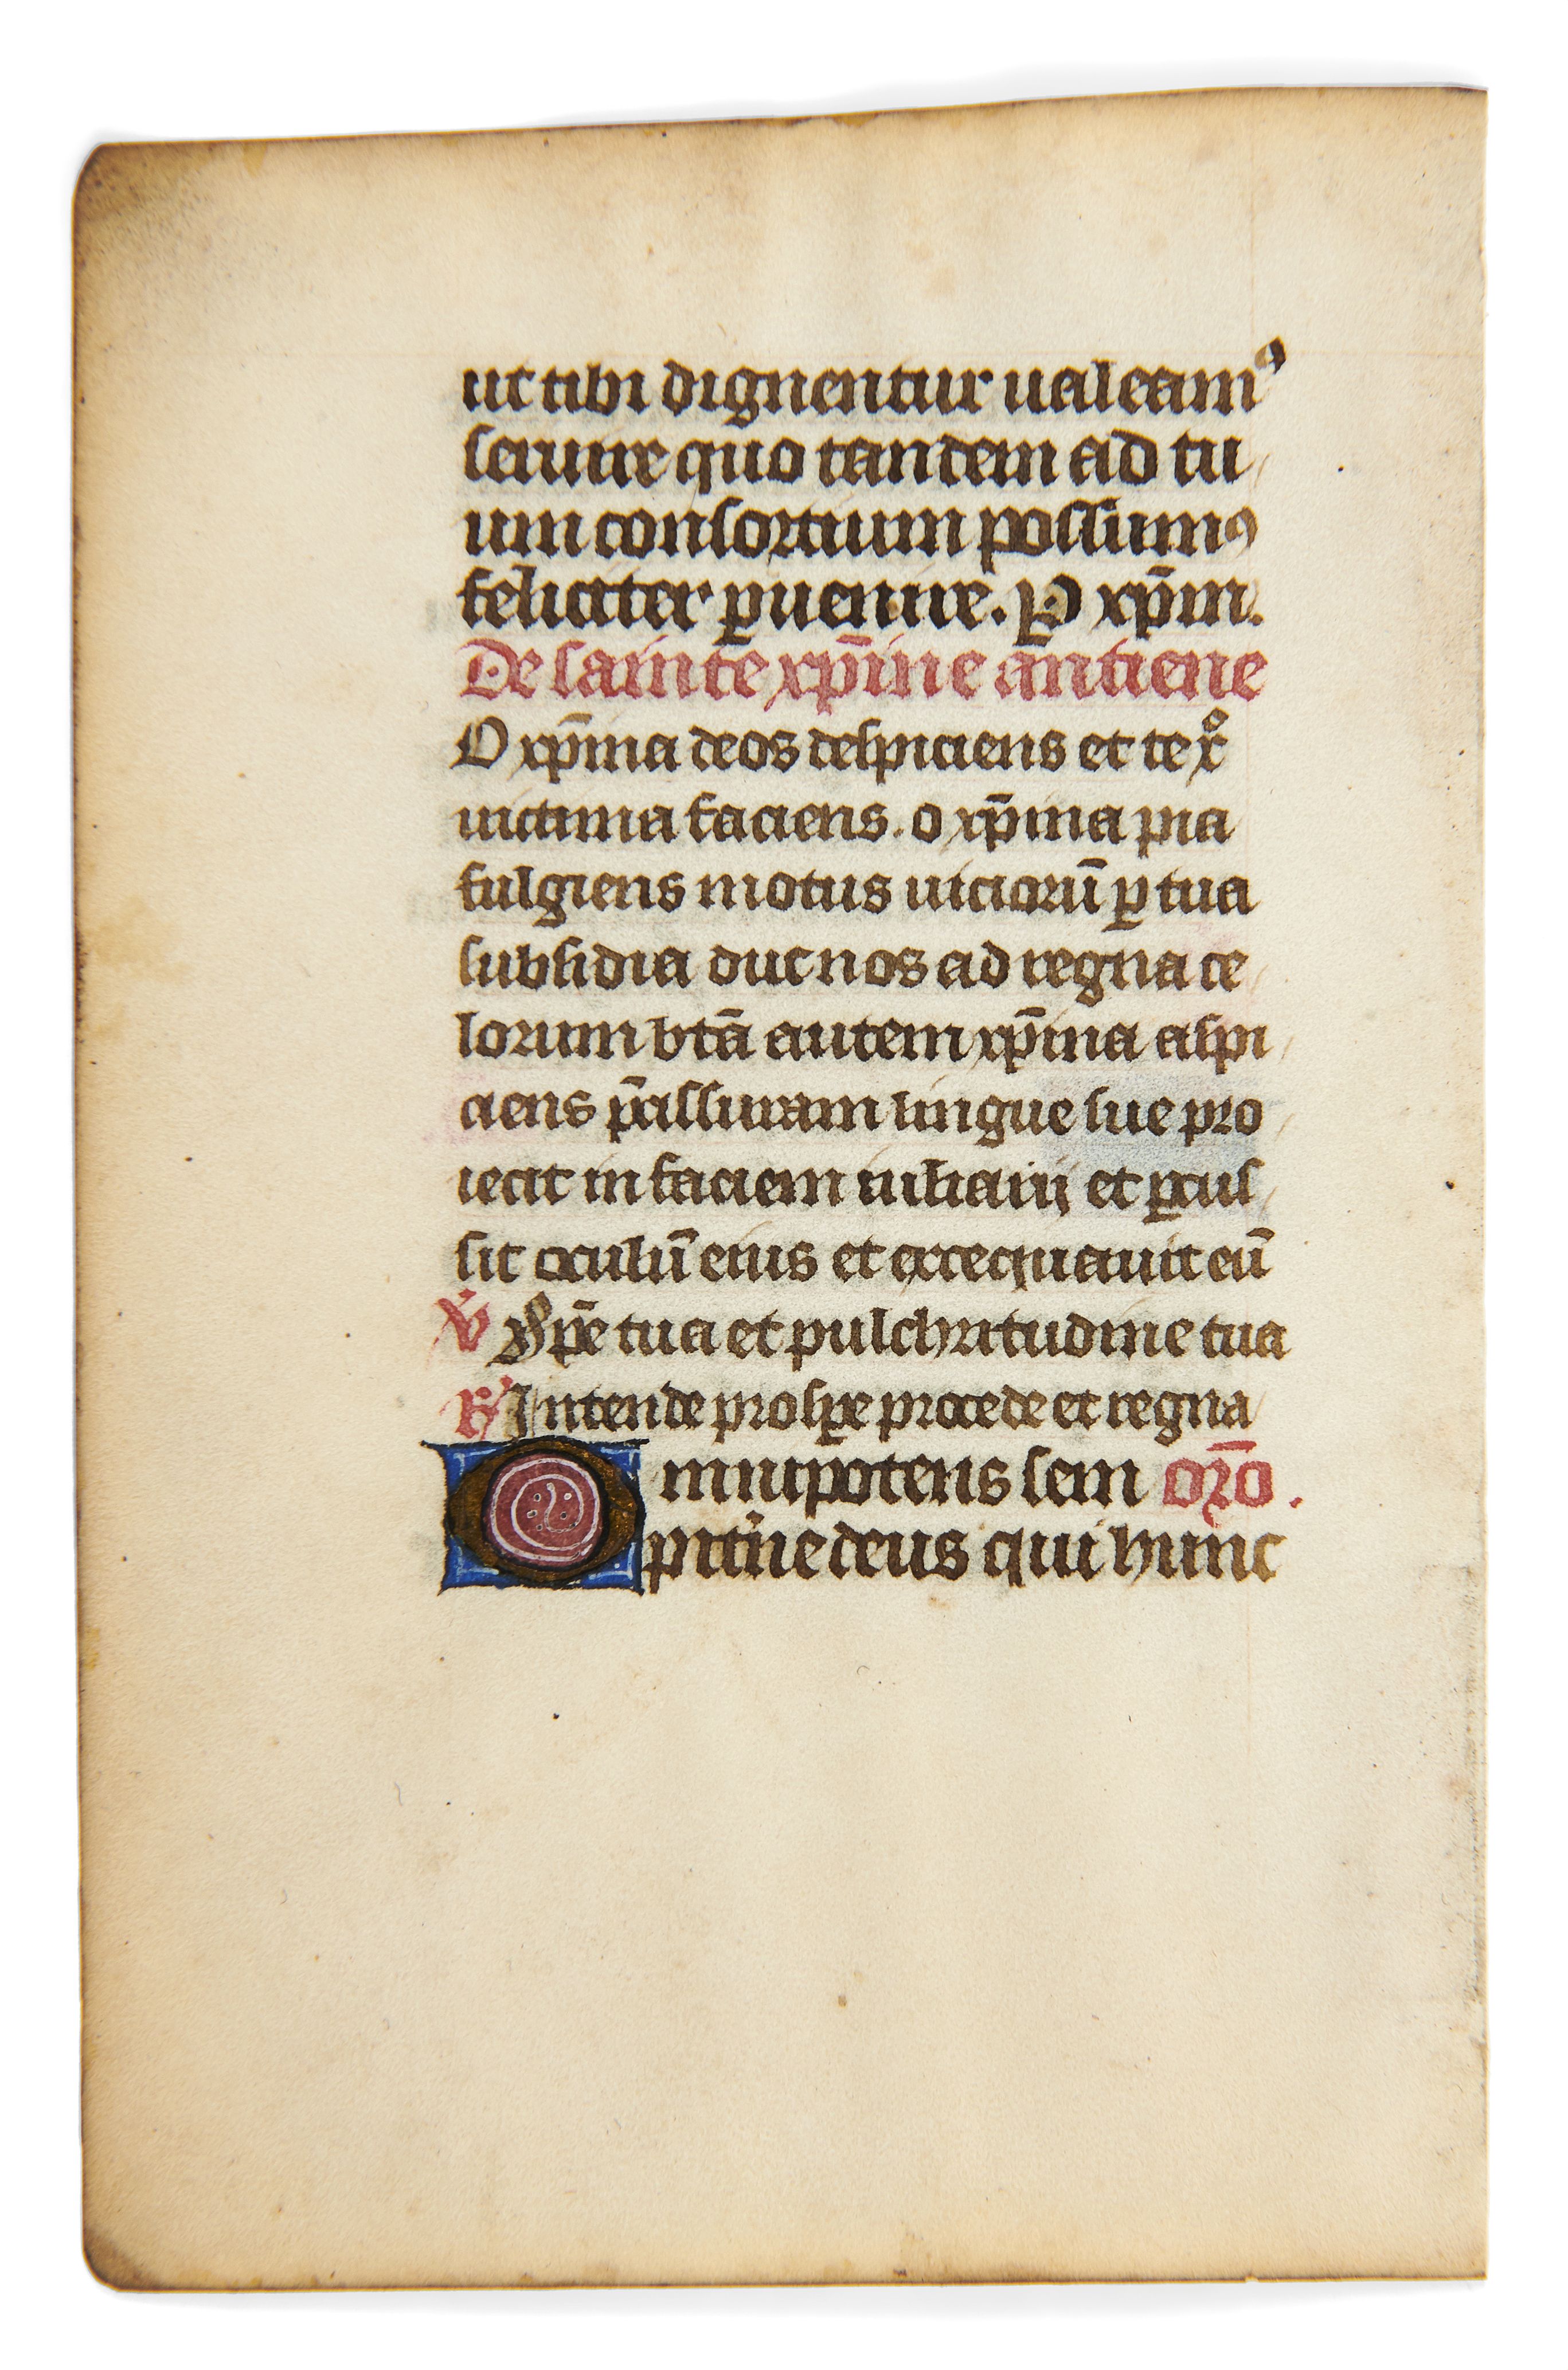 ut tibi dignentur ualeamꝰ
seruire quo tandem ad tu
um consortium possumꝰ
feliciter ꝑuenire. P xp̄m.
De sainte xp̄ine antiene
O xp̄ina deos despiciens et te
uictima faciens. o xp̄ina pia
fulgiens motus uiciorū ꝑ tua
subsidia duc nos ad regna ce
lorum btā autem xp̄ina aspi
ciens p̄cissuram lingue sue pro
iecit in faciem iuliani et ꝑcus
sit oculū eius et excequauit eū
℣ Spē tua et pulchritudine tua
℟ Intende prosꝑe procede et regna
Omnipotens sem oro᷒.
pit̄ne deus qui hunc